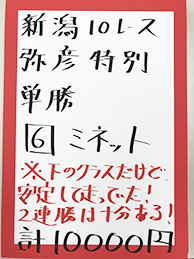 新潟10レース
弥彦特別
単勝
6 ミネット
※下のクラスだけど
安定して走っていた!
2連勝は十分ある!
計10000円